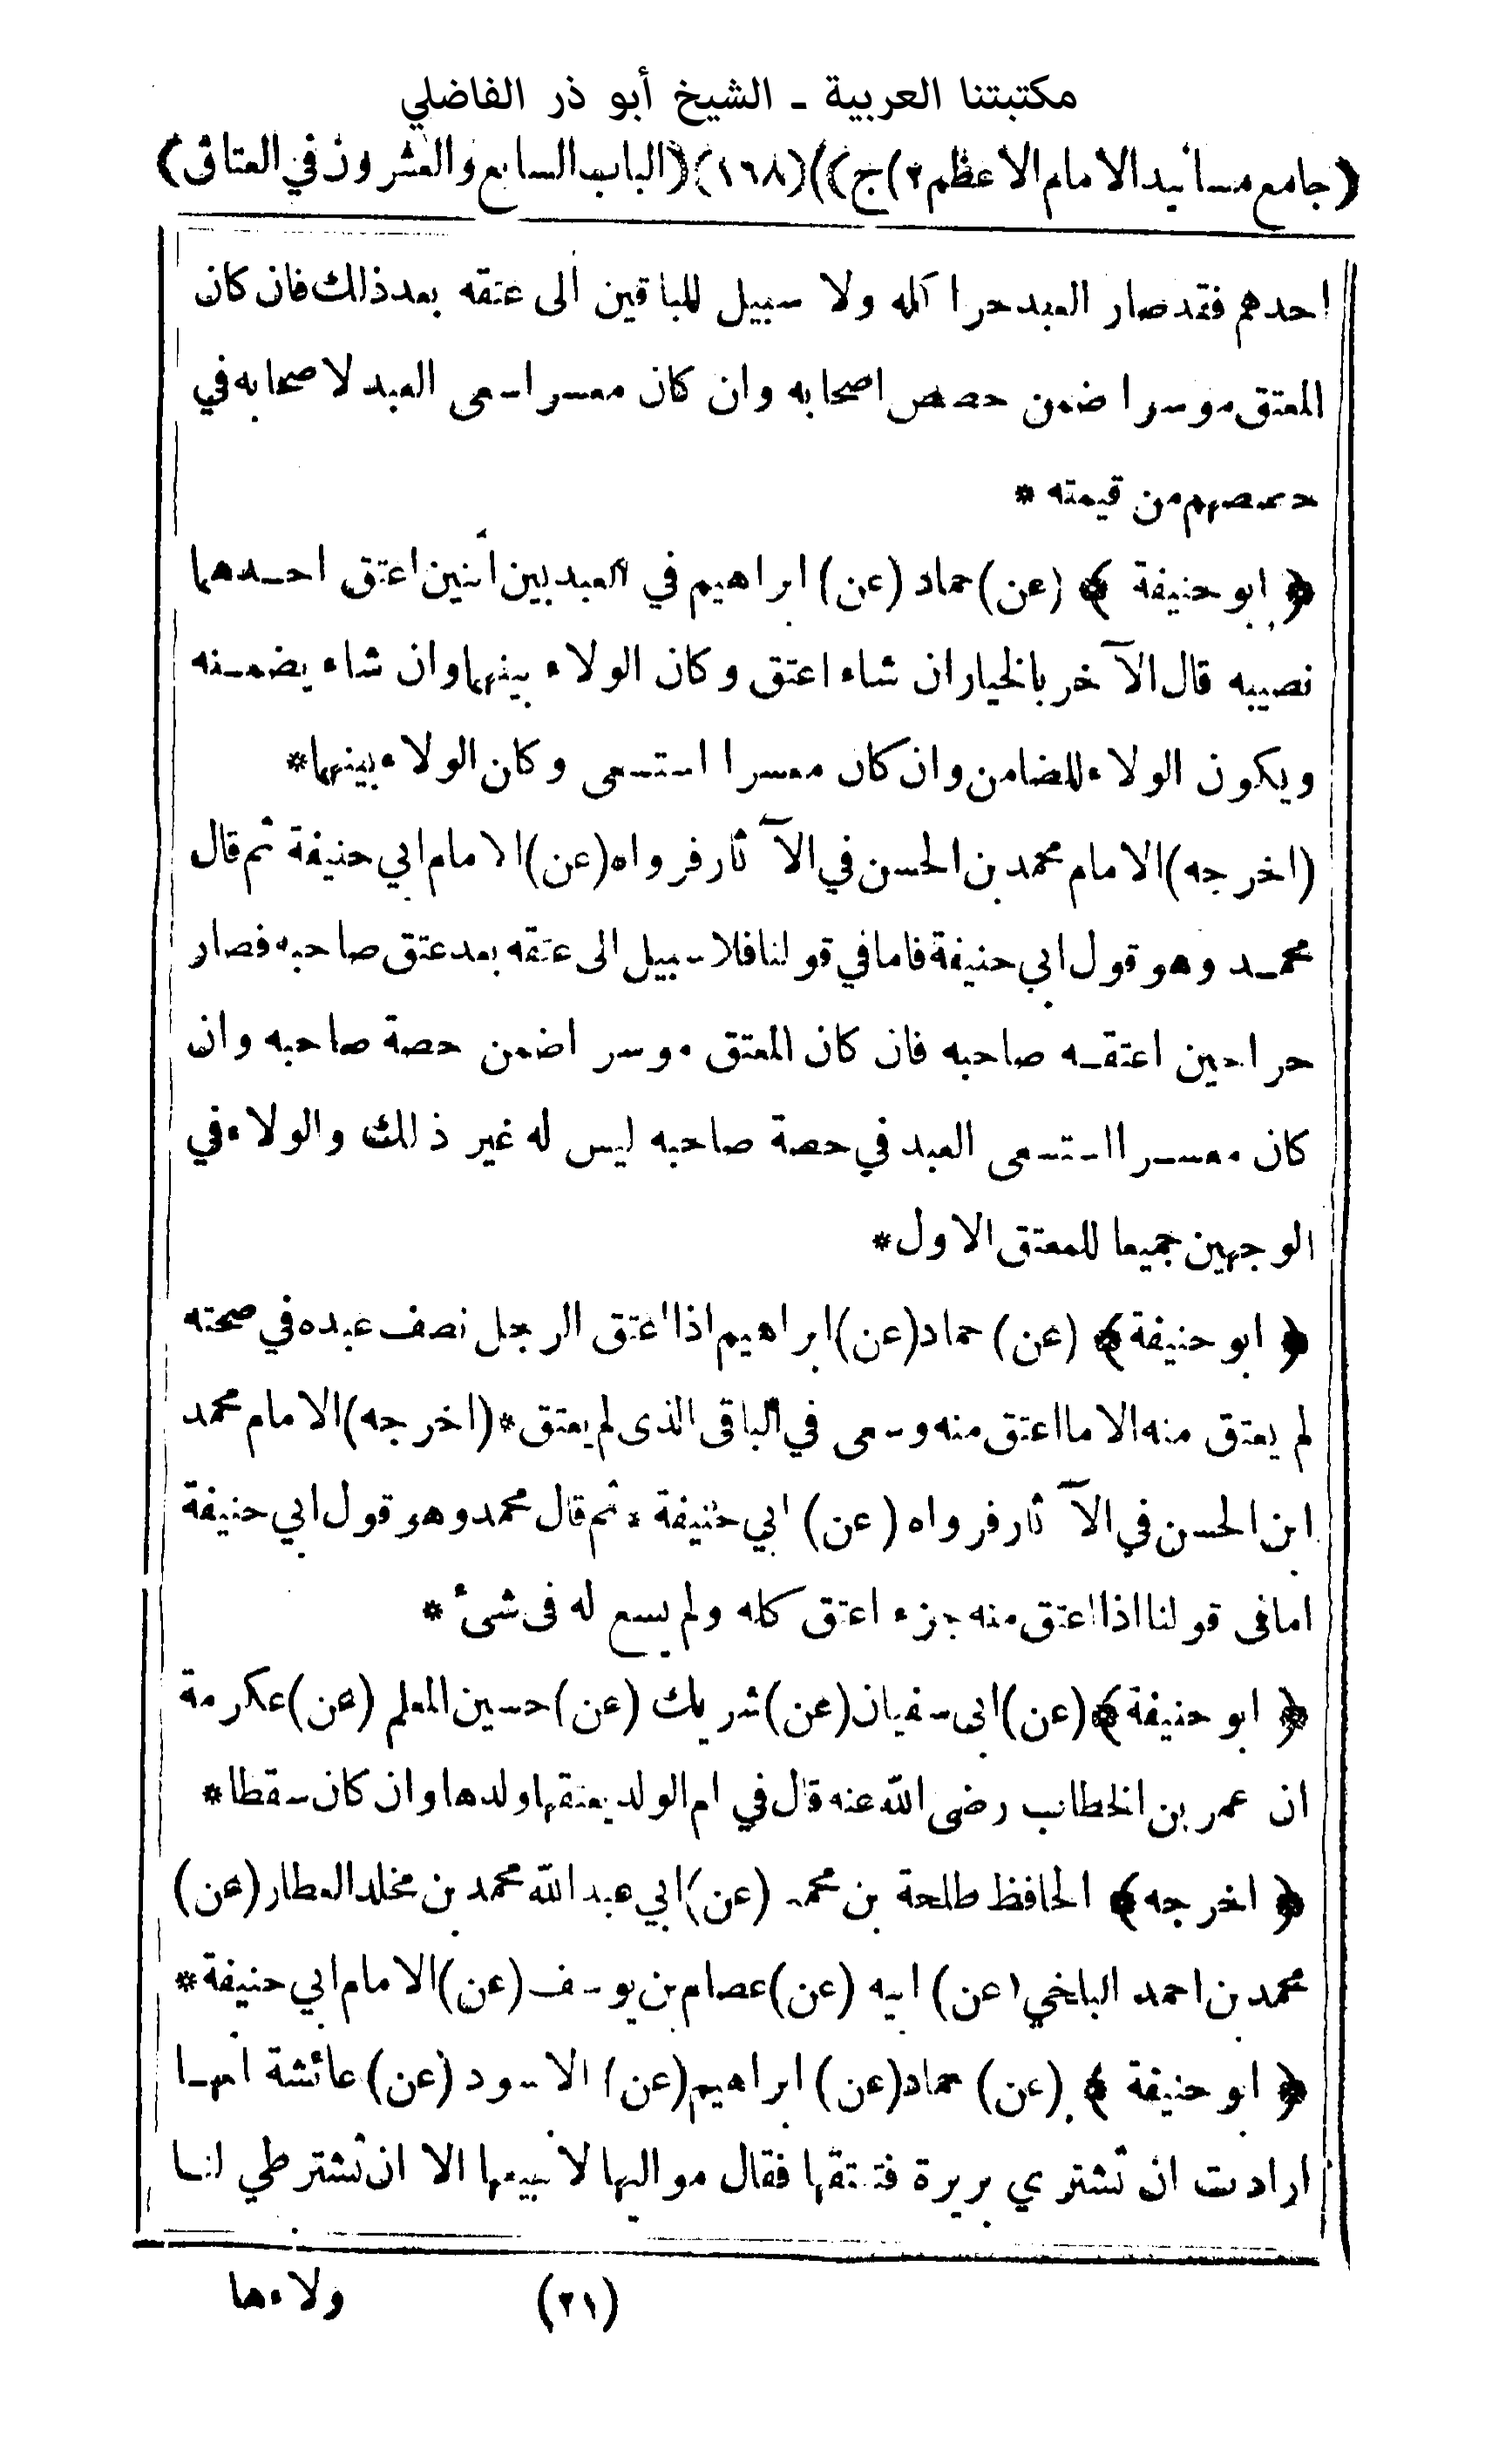 مكتبتنا العربية ـ الشيخ أبو ذر الفاضلي
(جامع مسانيد الامام الاعظم ٢)(ج))(١٦٨)(الباب السابع والعشرون في العتاق)
احدهم فقد صار العبد حرا كله ولا سبيل للباقين الى عتقه بعد ذلك فان كان
المعتق موسرا ضمن حصص اصحابه وان كان معسرا سعى العبد لاصحابه في
حصصهم من قيمته *
﴿ ابو حنيفة ﴾ (عن) حماد (عن) ابراهيم في العبد بين اثنين اعتق احدهما
نصيبه قال الآخر بالخيار ان شاء اعتق وكان الولاء بينهما وان شاء يضمنه
ويكون الولاء للضامن وان كان معسرا استسعى وكان الولاء بينهما *
(اخرجه) الامام محمد بن الحسن في الآثار فرواه (عن) الامام ابي حنيفة ثم قال
محمد وهو قول ابي حنيفة فاما في قولنا فلا سبيل الى عتقه بعد عتق صاحبه فصار
حرا حين اعتقه صاحبه فان كان المعتق موسرا ضمن حصة صاحبه وان
كان معسرا استسعى العبد في حصة صاحبه ليس له غير ذلك والولاء في
الوجهين جميعا للمعتق الاول *
﴿ ابو حنيفة ﴾ (عن) حماد (عن) ابراهيم اذا اعتق الرجل نصف عبده في صحته
لم يعتق منه الا ما اعتق منه وسعى في الباقى الذى لم يعتق * (اخرجه) الامام محمد
ابن الحسن في الآثار فرواه (عن) ابي حنيفة * ثم قال محمد وهو قول ابي حنيفة
اما فى قولنا اذا اعتق منه جزء اعتق كله ولم يسع له فى شئ *
﴿ ابو حنيفة ﴾ (عن) ابى سفيان (عن) شريك (عن) حسين المعلم (عن) عكرمة
ان عمر بن الخطاب رضى الله عنه قال في ام الولد يعتقها ولدها وان كان سقطا *
﴿ اخرجه ﴾ الحافظ طلحة بن محمد (عن) ابي عبد الله محمد بن مخلد العطار (عن)
محمد بن احمد البلخي (عن) ابيه (عن) عصام بن يوسف (عن) الامام ابي حنيفة *
﴿ ابو حنيفة ﴾ (عن) حماد (عن) ابراهيم (عن) الاسود (عن) عائشة انها
ارادت ان تشتري بريرة فتعتقها فقال مواليها لا نبيعها الا ان تشترطي لنا
(٢١) ولاءها